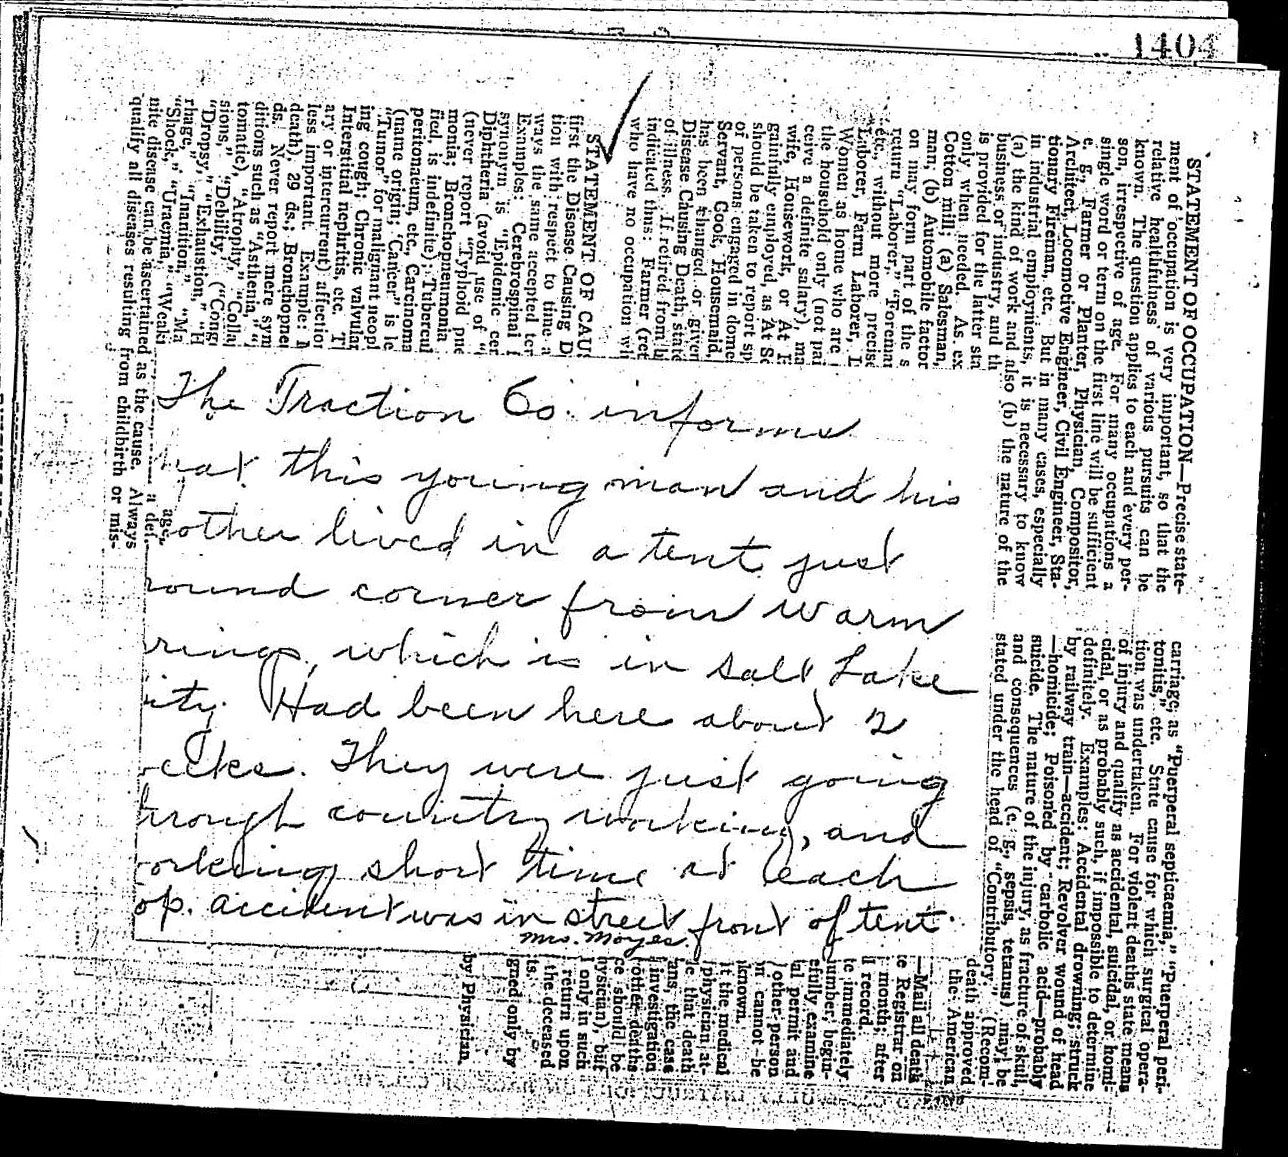 1404
STATEMENT OF OCCUPATION—Precise state-
ment of occupation is very important, so that the
relative healthfulness of various pursuits can be
known. The question applies to each and every per-
son, irrespective of age. For many occupations a
single word or term on the first line will be sufficient
e. g., Farmer or Planter, Physician, Compositor,
Architect, Locomotive Engineer, Civil Engineer, Sta-
tionary Fireman, etc. But in many cases, especially
in industrial employments, it is necessary to know
(a) the kind of work and also (b) the nature of the
business or industry, and th
is provided for the latter sta
only when needed. As ex
Cotton mill; (a) Salesman,
man, (b) Automobile factor
on may form part of the s
return "Laborer," "Foreman
etc., without more precise
Laborer, Farm Laborer, L
Women at home who are
the household only (not pai
ceive a definite salary), ma
wife, Housework, or At H
gainfully employed, as At Sc
should be taken to report sp
of persons engaged in dome
Servant, Cook, Housemaid,
has been changed or given
Disease Causing Death, state
of illness. If retired from b
indicated thus: Farmer (ret
who have no occupation w
STATEMENT OF CAUS
first the Disease Causing D
tion with respect to time a
ways the same accepted ter
Examples: Cerebrospinal f
synonym is "Epidemic cer
Diphtheria (avoid use of "
(never report "Typhoid pne
monia; Bronchopneumonia
fied is indefinite); Tubercul
peritonaeum, etc., Carcinoma
(name origin; "Cancer" is le
"Tumor" for malignant neopl
ing cough; Chronic valvular
Interstitial nephritis, etc. T
ary or intercurrent) affection
less important. Example: M
death), 29 ds.; Bronchopne
ds. Never report mere sym
ditions such as "Asthenia," "
tomatic), "Atrophy," "Colla
sions," "Debility," ("Cong
"Dropsy," "Exhaustion," "H
rhage," "Inanition," "Ma
"Shock," "Uraemia," "Weakn
age,
a defi-
nite disease can be ascertained as the cause. Always
qualify all diseases resulting from childbirth or mis-
carriage, as "Puerperal septicaemia," "Puerperal peri-
tonitis," etc. State cause for which surgical opera-
tion was undertaken. For violent deaths state means
of injury and qualify as accidental, suicidal, or homi-
cidal, or as probably such, if impossible to determine
definitely. Examples: Accidental drowning; struck
by railway train—accident; Revolver wound of head
—homicide; Poisoned by carbolic acid—probably
suicide. The nature of the injury, as fracture of skull,
and consequences (e. g., sepsis, tetanus) may be
stated under the head of "Contributory." (Recom-
death approved
the American
—Mail all death
e Registrar on
month; after
ll record.
te immediately
umber, begin-
efully examine
ial permit and
other person
n cannot be
known.
t the medical
physician at-
e that death
ans, the case
investigation
other deaths
e should be
hysician), but
only in such
return upon
the deceased
ts.
gned only by
by Physician.
The Traction Co. informs
hat this young man and his
other lived in a tent just
round corner from Warm
rings, which is in Salt Lake
ity. Had been here about 2
eeks. They were just going
hrough country working, and
orking short time at each
op. accident was in street front of tent.
Mrs. Moyes.